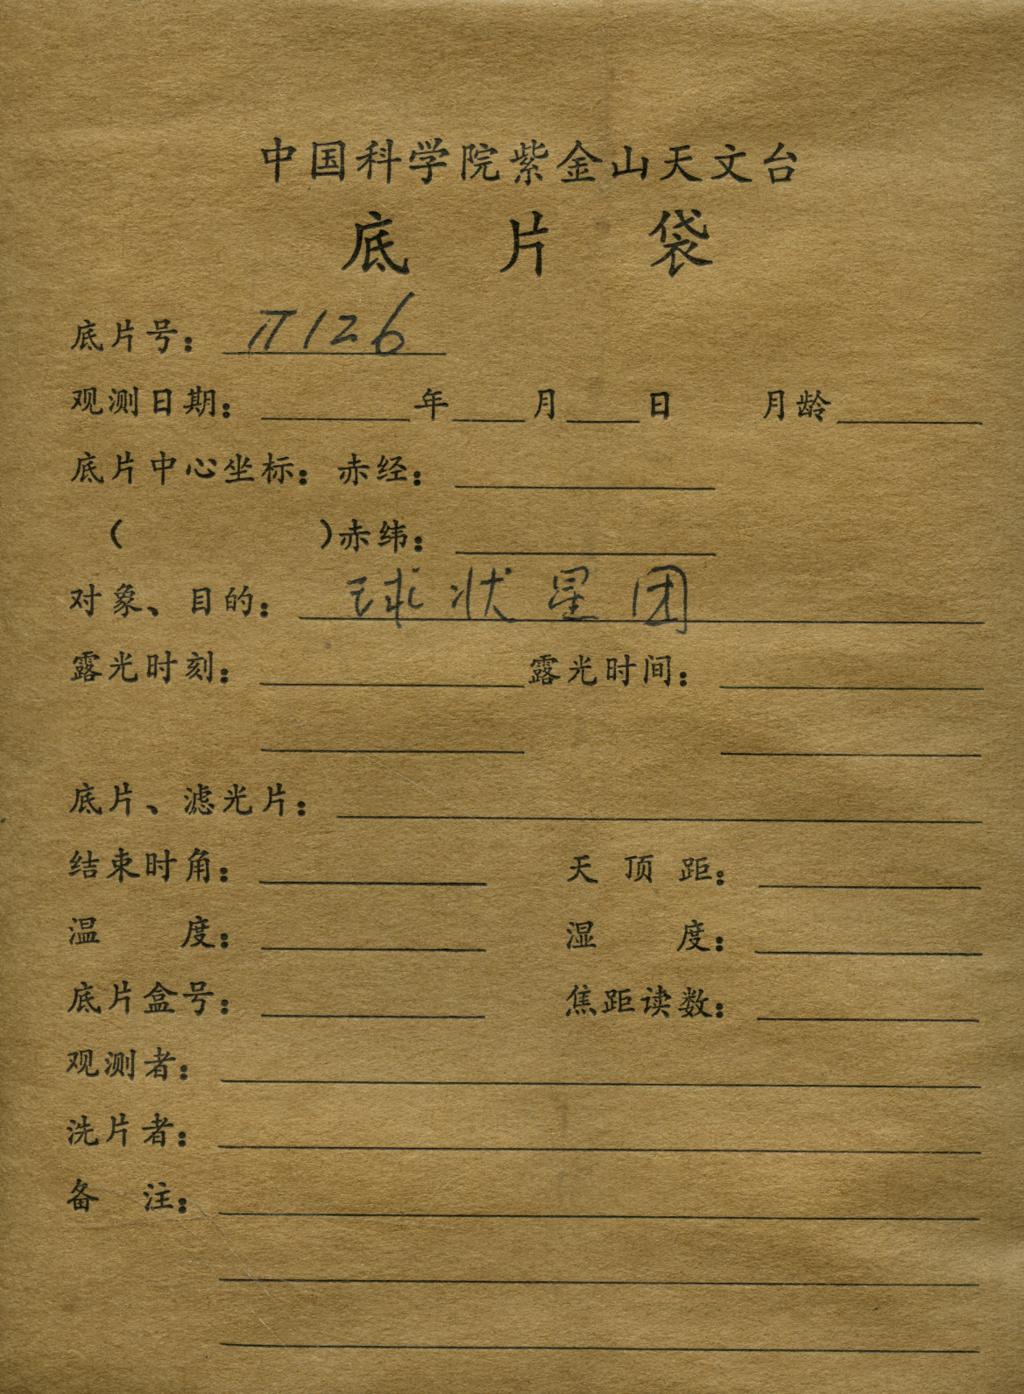 中国科学院紫金山天文台
底片袋
底片号：π126
观测日期：______年____月____日 月龄______
底片中心坐标：赤经：
（ ）赤纬：
对象、目的：球状星团
露光时刻： 露光时间：
底片、滤光片：
结束时角： 天顶距：
温度： 湿度：
底片盒号： 焦距读数：
观测者：
洗片者：
备注：